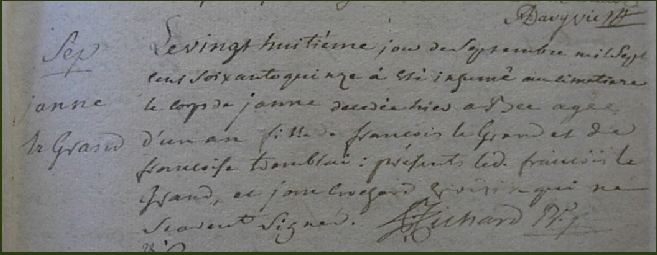 Sep
janne
le Grand
Le vingt huitième jour de Septembre mil Sept
cens Soixante quinze à été inhumé au cimetiere
le corps de janne decedée hier agée
d'un an fille de francois le Grand et de
francoise : présents led. francois le
Grand, et jean voisin qui ne
Scavent Signer. Richard